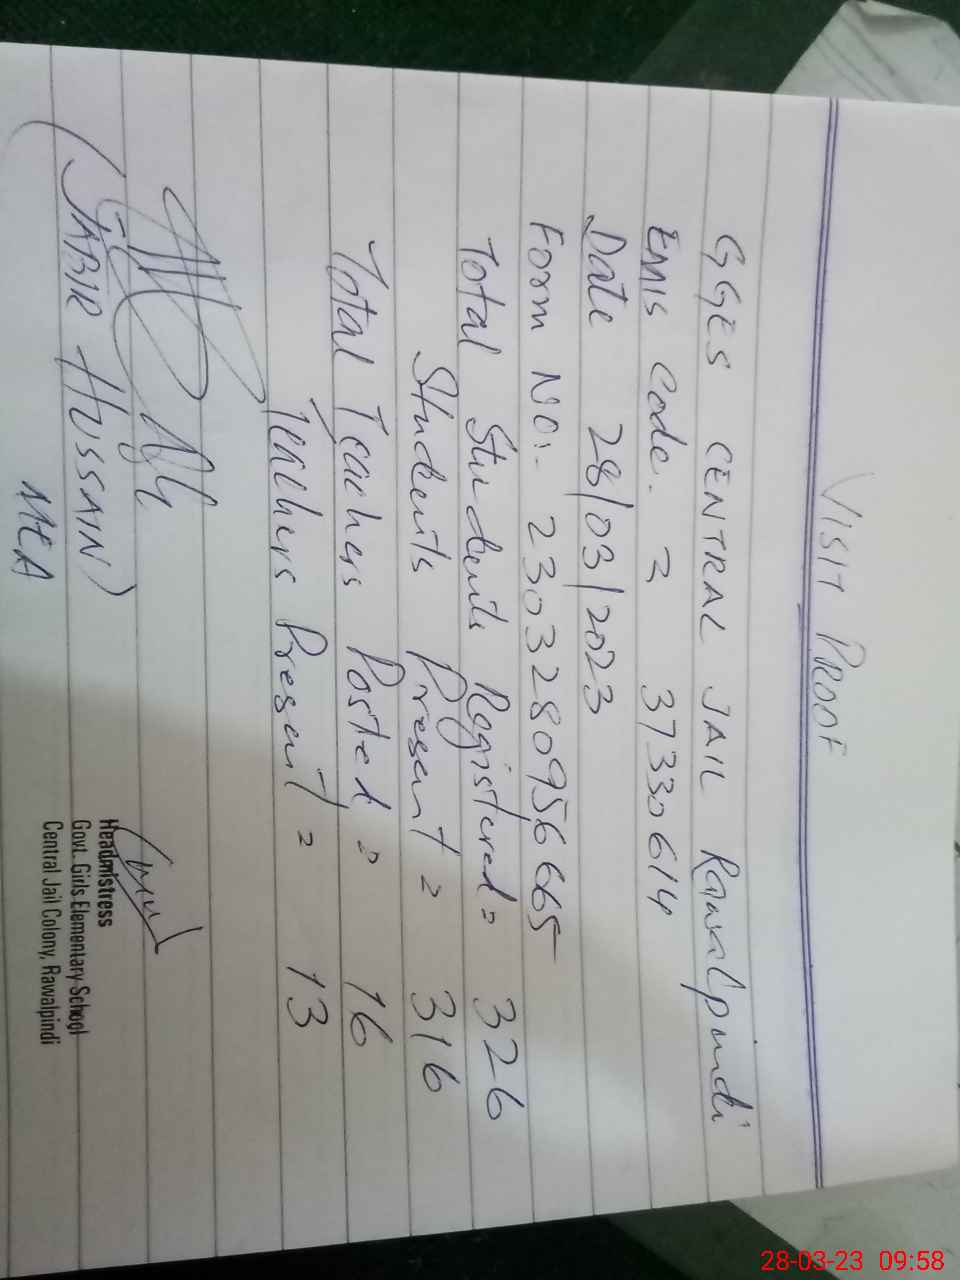 VISIT PROOF
GGES CENTRAL JAIL Rawalpindi
EMIS Code. = 37330614
Date 28/03/2023
Form NO:- 2303280956665
Total Students Registered = 326
Students Present = 316
Total Teachers Posted = 16
Teachers Present = 13
(JABIR HUSSAIN)
MEA
Headmistress
Govt. Girls Elementary School
Central Jail Colony, Rawalpindi
28-03-23 09:58